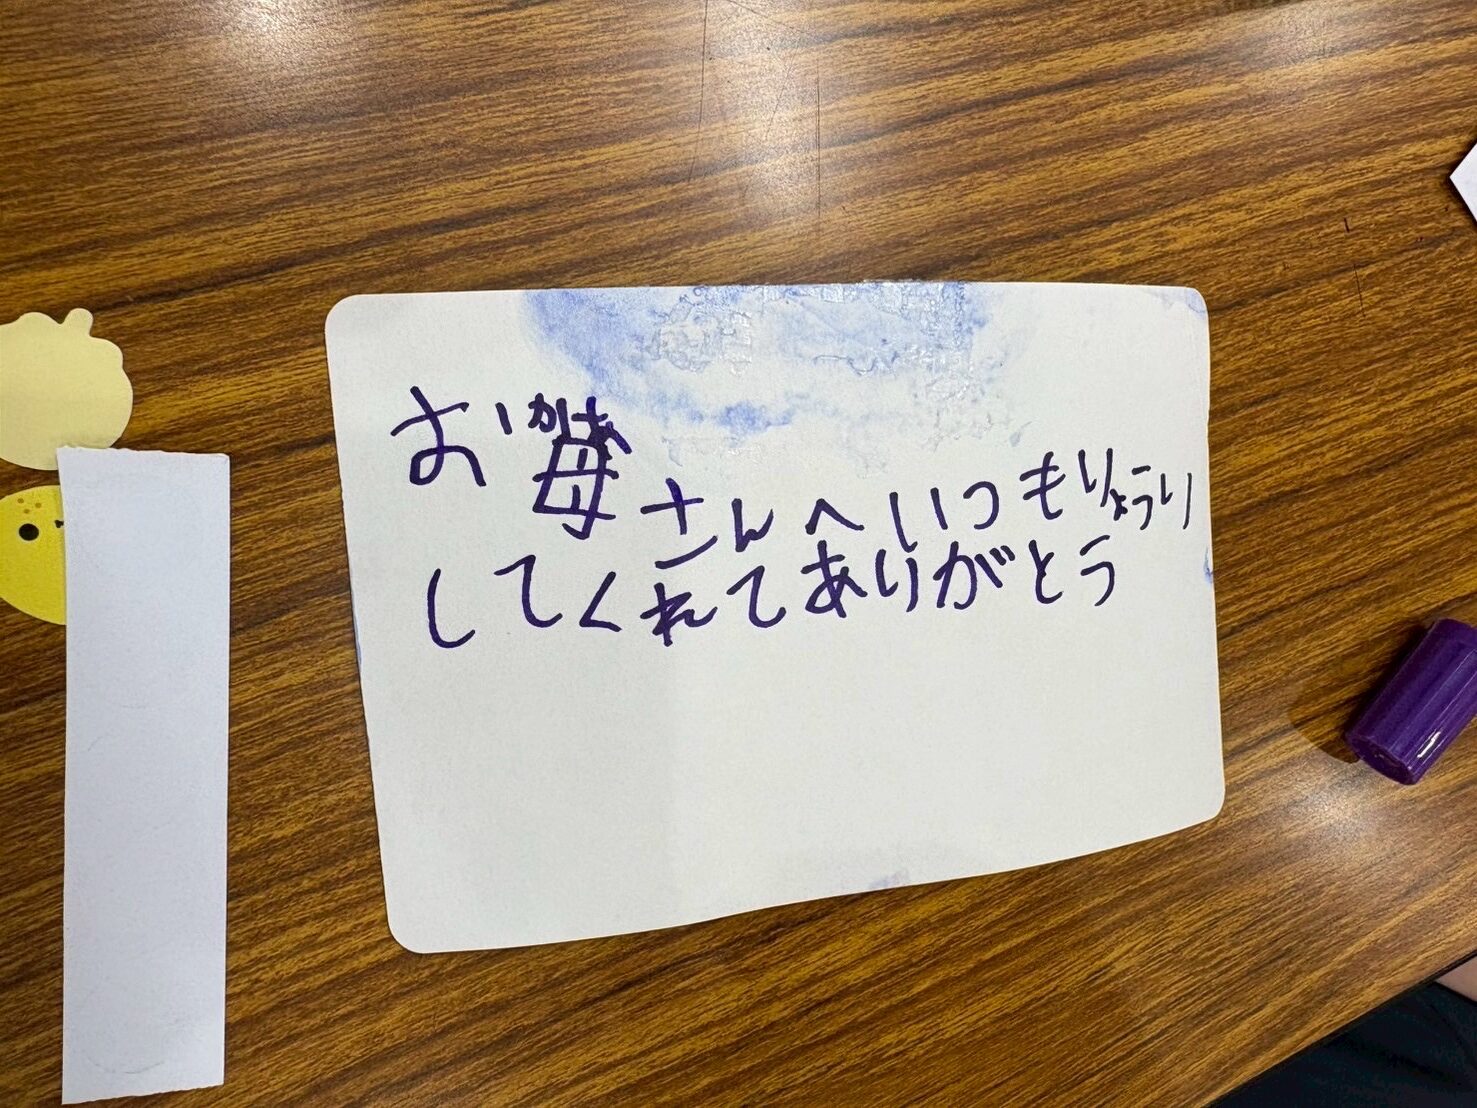 お母さんへいつもりょうり
してくれてありがとう